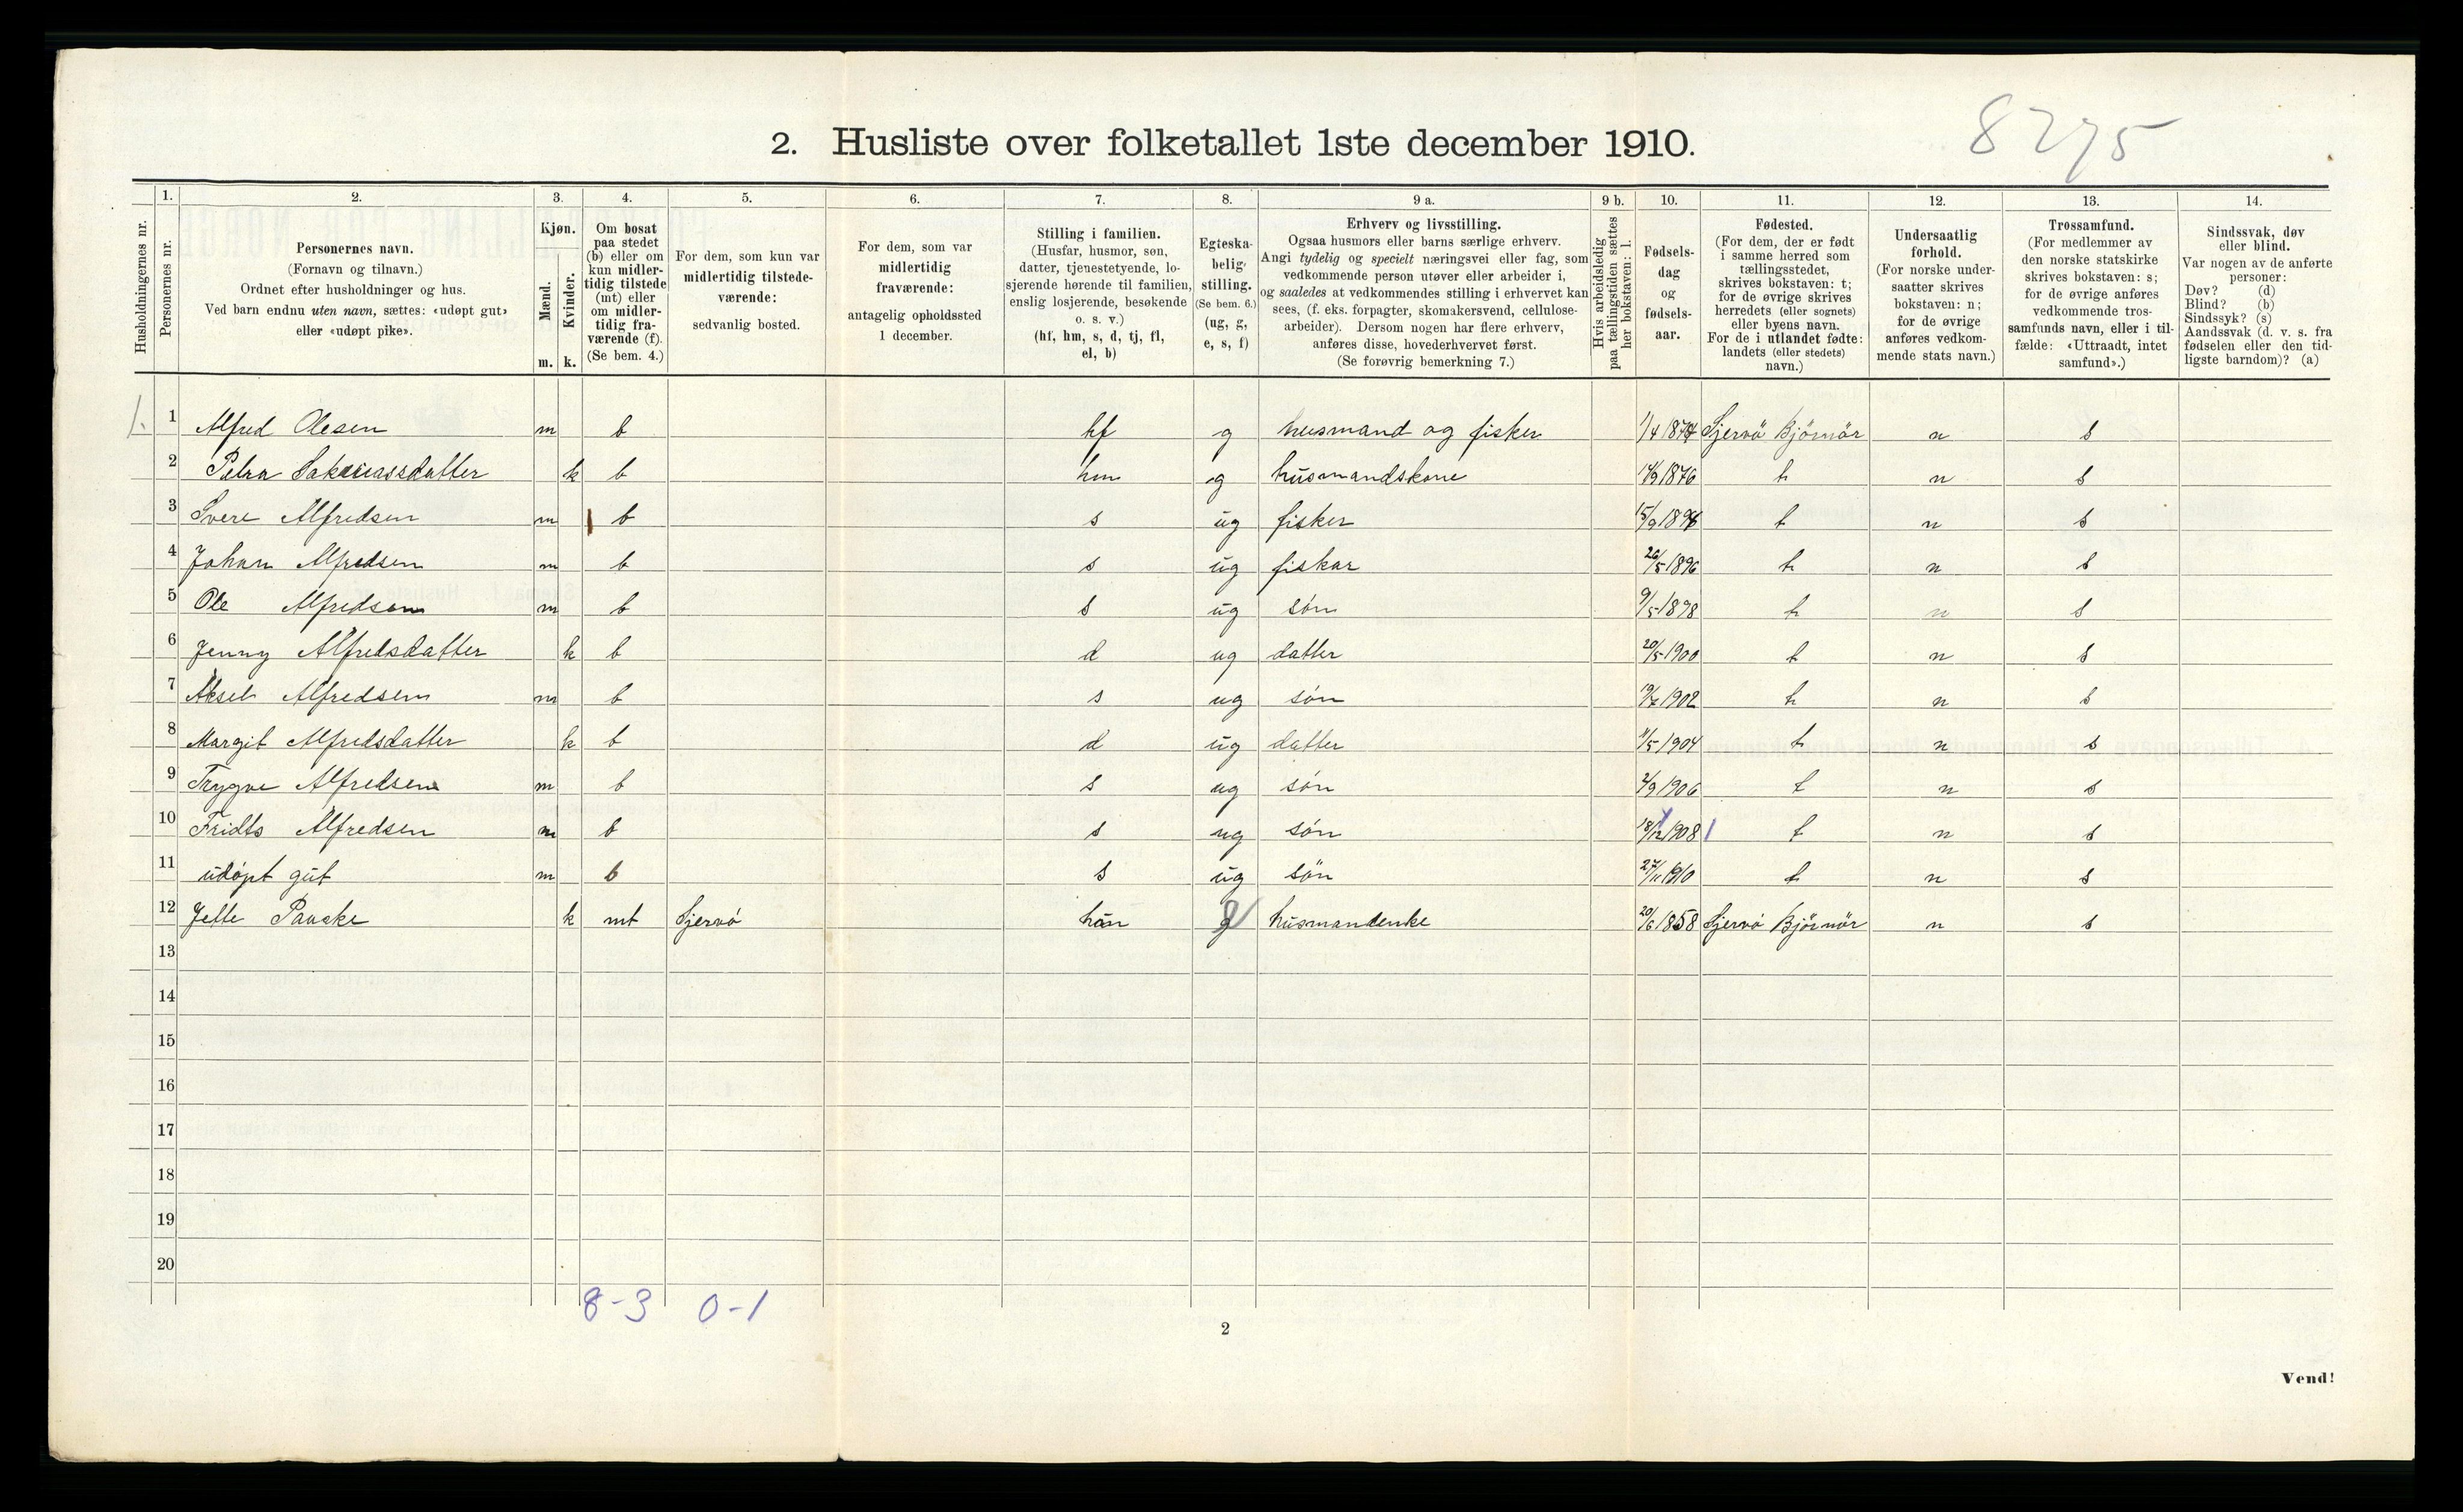 8275
2. Husliste over folketallet 1ste december 1910.
1. 2. 3. 4. 5. 6. 7. 8. 9 a. 9 b. 10. 11. 12. 13. 14.
Husholdningernes nr.
Personernes nr.
Personernes navn.
(Fornavn og tilnavn.)
Ordnet efter husholdninger og hus.
Ved barn endnu uten navn, sættes: «udøpt gut»
eller «udøpt pike».
Kjøn.
Mænd.
Kvinder.
m. k.
Om bosat
paa stedet
(b) eller om
kun midler-
tidig tilstede
(mt) eller
om midler-
tidig fra-
værende (f).
(Se bem. 4.)
For dem, som kun var
midlertidig tilstede-
værende:
sedvanlig bosted.
For dem, som var
midlertidig
fraværende:
antagelig opholdssted
1 december.
Stilling i familien.
(Husfar, husmor, søn,
datter, tjenestetyende, lo-
sjerende hørende til familien,
enslig losjerende, besøkende
o. s. v.)
(hf, hm, s, d, tj, fl,
el, b)
Egteska-
belig
stilling.
(Se bem. 6.)
(ug, g,
e, s, f)
Erhverv og livsstilling.
Ogsaa husmors eller barns særlige erhverv.
Angi tydelig og specielt næringsvei eller fag, som
vedkommende person utøver eller arbeider i,
og saaledes at vedkommendes stilling i erhvervet kan
sees, (f. eks. forpagter, skomakersvend, cellulose-
arbeider). Dersom nogen har flere erhverv,
anføres disse, hovederhvervet først.
(Se forøvrig bemerkning 7.)
Hvis arbeidsledig
paa tællingstiden sættes
her bokstaven: l.
Fødsels-
dag
og
fødsels-
aar.
Fødested.
(For dem, der er født
i samme herred som
tællingsstedet,
skrives bokstaven: t;
for de øvrige skrives
herredets (eller sognets)
eller byens navn.
For de i utlandet fødte:
landets (eller stedets)
navn.)
Undersaatlig
forhold.
(For norske under-
saatter skrives
bokstaven: n;
for de øvrige
anføres vedkom-
mende stats navn.)
Trossamfund.
(For medlemmer av
den norske statskirke
skrives bokstaven: s;
for de øvrige anføres
vedkommende tros-
samfunds navn, eller i til-
fælde: «Uttraadt, intet
samfund».)
Sindssvak, døv
eller blind.
Var nogen av de anførte
personer:
Døv? (d)
Blind? (b)
Sindssyk? (s)
Aandssvak (d. v. s. fra
fødselen eller den tid-
ligste barndom)? (a)
1. 1 Alfred Olesen m b hf g husmand og fisker 1/4 1874 Sjervö Björnör n s
2 Petra Sakariassdatter k b hm g husmandskone 14/9 1876 t n s
3 Svere Alfredsen m b s ug fisker 15/9 1894 t n s
4 Johan Alfredsen m b s ug fisker 26/5 1896 t n s
5 Ole Alfredsen m b s ug søn 9/5 1898 t n s
6 Jenny Alfredsdatter k b d ug datter 20/5 1900 t n s
7 Aksel Alfredsen m b s ug søn 19/7 1902 t n s
8 Margit Alfredsdatter k b d ug datter 11/5 1904 t n s
9 Trygve Alfredsen m b s ug søn 2/9 1906 t n s
10 Fridts Alfredsen m b s ug søn 18/12 1908 t n s
11 udøpt gut m b s ug søn 27/11 1910 t n s
12 Jette Pauske k mt Sjervö husmandenke 20/6 1858 Sjervö Björnör n s
13
14
15
16
17
18
19
20
8-3 0-1
2
Vend!